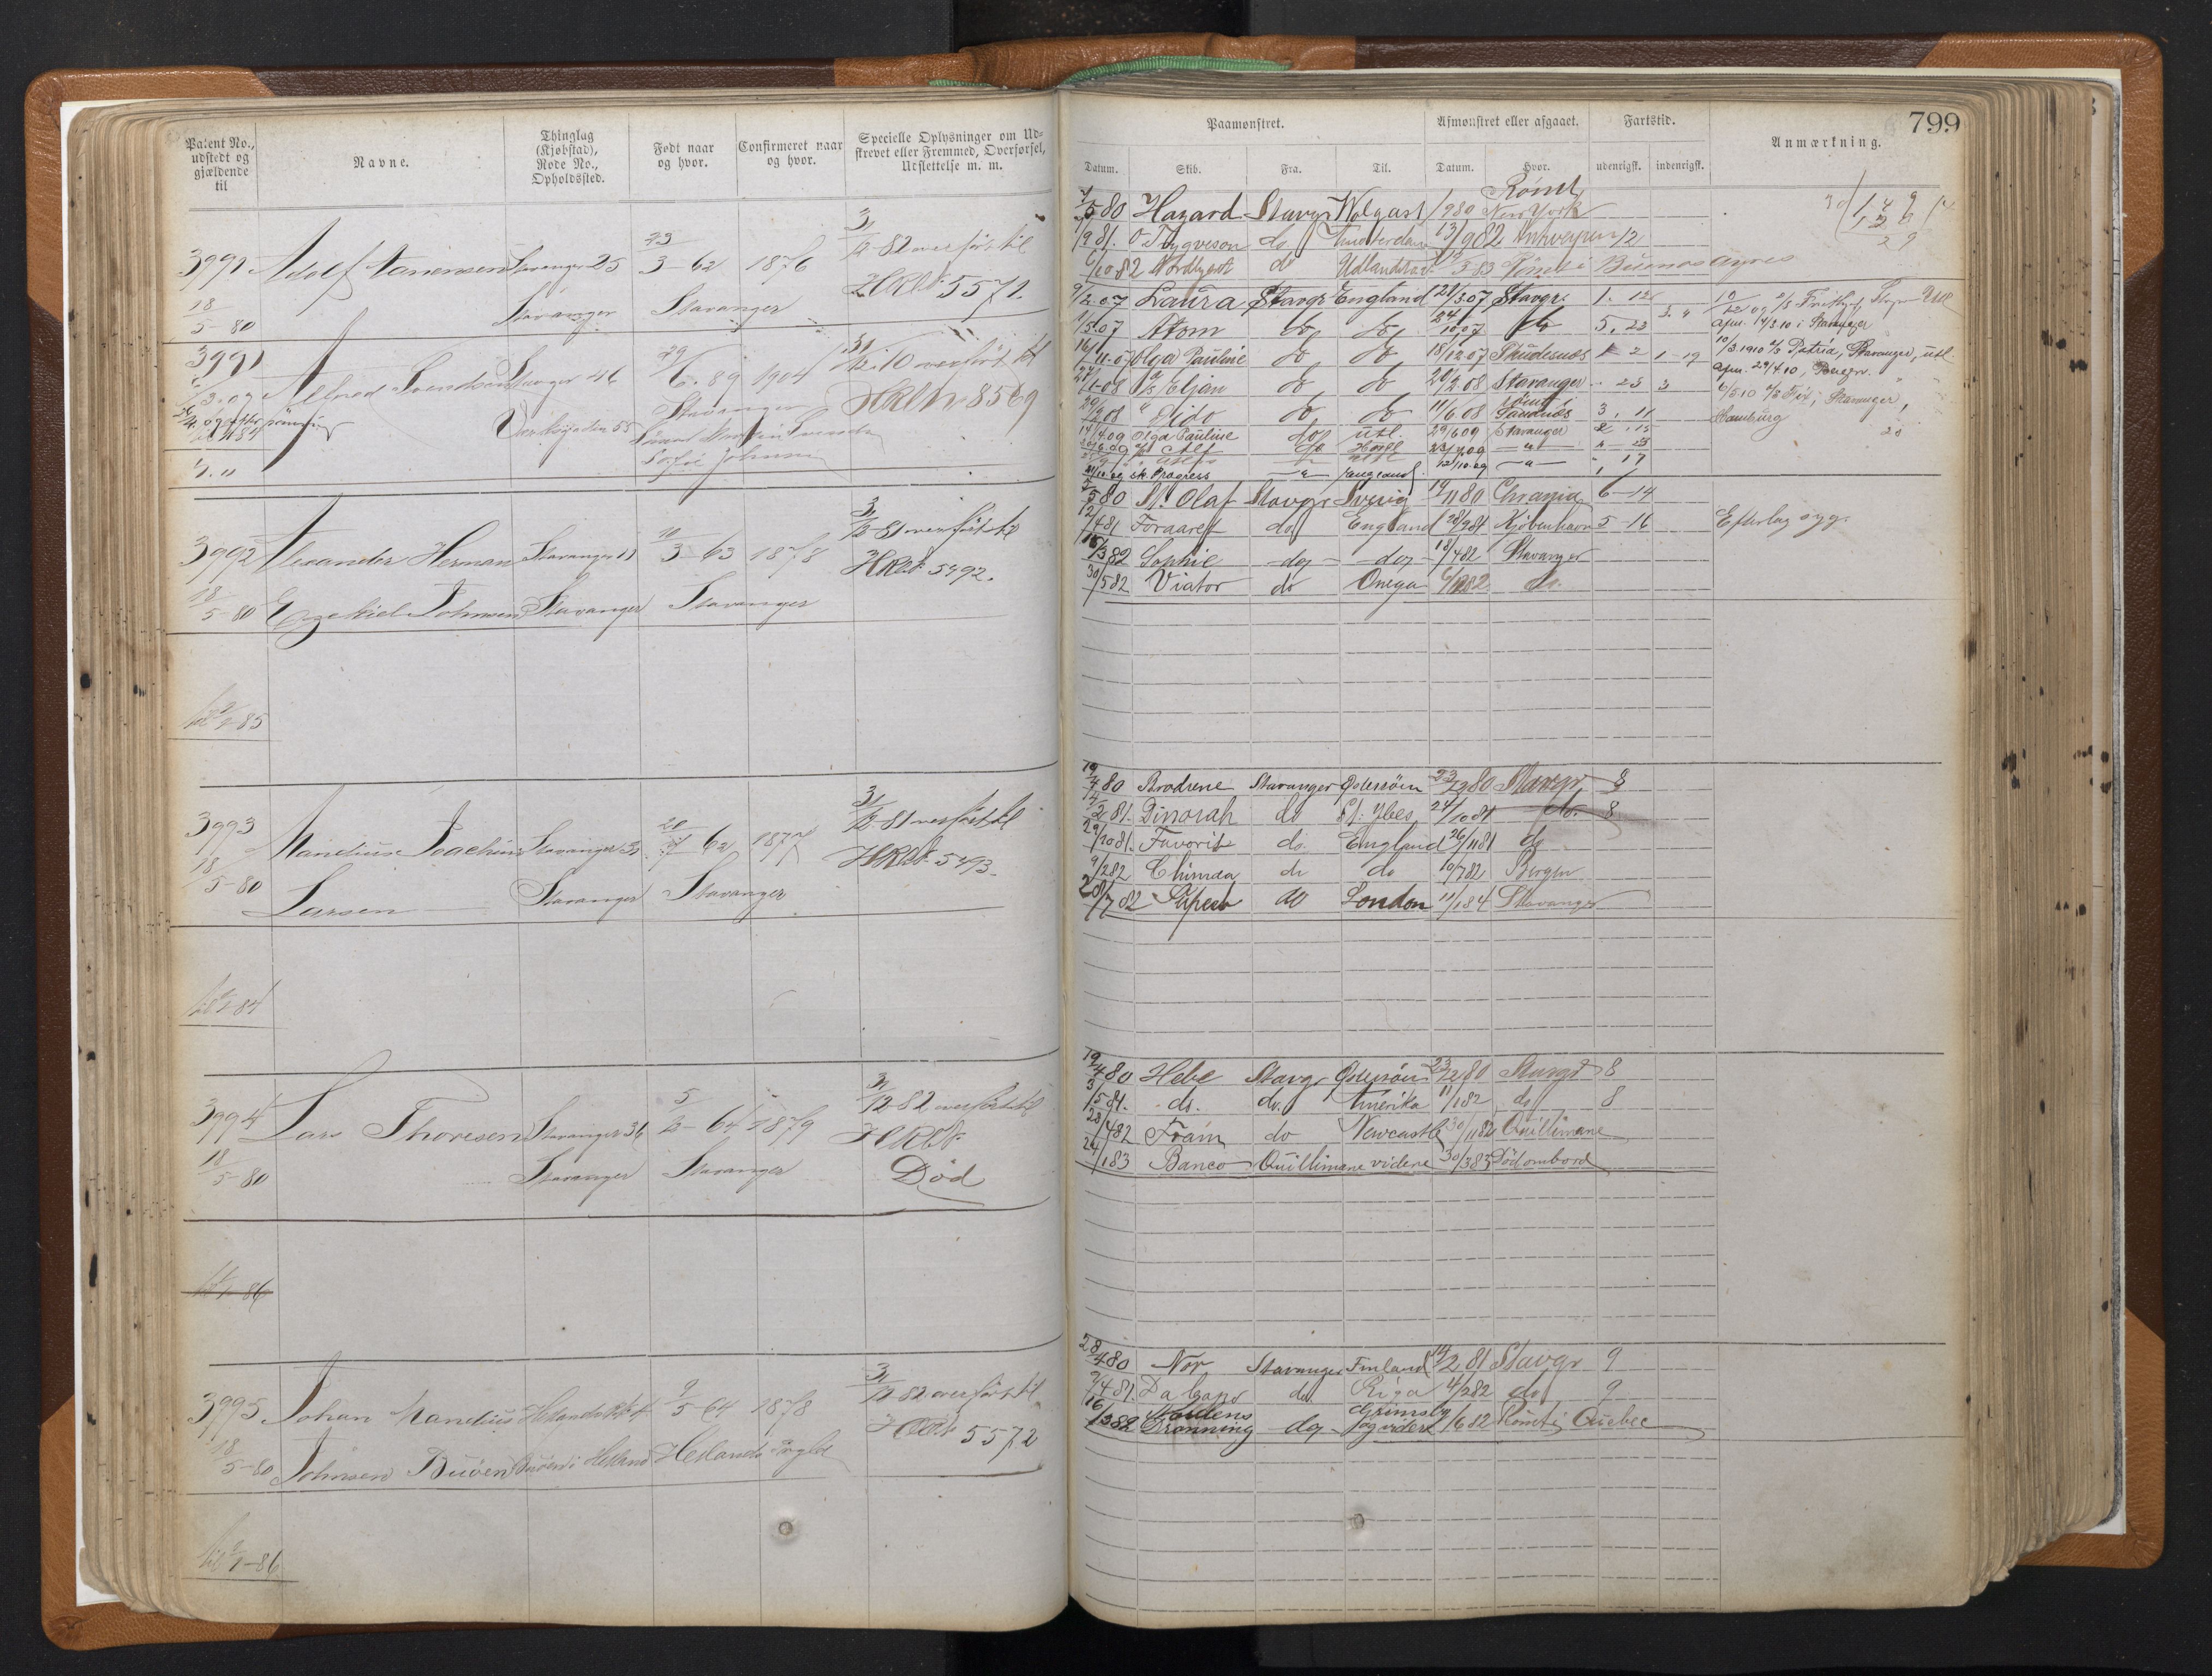 Patent No., udstedt og gjældende til
Navne.
Thinglag (Kjøbstad), Rode No., Opholdssted.
Født naar og hvor.
Confirmeret naar og hvor.
Specielle Oplysninger om Udstrevet eller Fremmed, Overførsel, Udslettelse m. m.
3991 Adolf Stavanger 25 23/3-62 1876 31/12-82 overført til
18/5-80 Stavanger Stavanger HRL№ 5571.
3991 Alfred Svendsen Stavger 46 29/6.89 1904 31/12.10 overført til
Stavanger HRL№ 8569
3992 Alexander Herman Stavanger 11 10/3-63 1878 31/12-81 overført til
18/5-80 Ezekiel Johnsen Stavanger Stavanger HRL№ 5492.
til 9/2-85
3993 Mandius Joachim Stavanger 62 1877 31/12-81 overført til
18/5-80 Larsen Stavanger Stavanger HRL№ 5493.
3994 Lars Thoresen Stavanger 36 5/2-64 1879 31/12-82 overført til
18/5-80 Stavanger Stavanger HRL№
Død
3995 Johan Mandius 9/5-64 1878 31/12-82 overført til
18/5-80 Johnsen Buøen Buøen i Hetland Hetlands HRL№ 5572
til 9/1-86
799
Paamønstret.
Afmønstret eller afgaaet.
Fartstid.
Anmærkning.
Datum. Skib. Fra. Til. Datum. Hvor. udenrigsk. indenrigsk.
Rømt
5 80 Hazard Stavgr Wolgast 1/9 80 New York
9 81. Trygveson do Amsterdam 13/9 82 Antwerpen 12
6/10 82 Nordlyset do Udlandet Rømt i Buenos Ayres
9/2.07 Laura Stavgr England 21/3.07 Stavgr. 1. 12
1/5.07 Atom do do 24/10.07 do 5. 23
16/11.07 Olga Pauline do do 18/12.07 Skudesnæs 1 2 1-19
1.08 Eljan do do 20/2.08 Stavanger 23 3
29/2 08 " Dido do do 11/6 08 Sandnæs 3. 11
14/4.09 Olga Pauline do utl. 29/6 09 Stavanger 2. 15
23/7.09
12/10.09 17
Progress
afm. 14/3.10 i Stavanger
10/3.1910 Patria, Stavanger, utl.
afm. 29/4.10, Bergen.
Stavanger,
Hamburg
5 80 St. Olaf Stavgr Sverig 19/11 80 Chrania 6-14
12/4 81 Foraaret do England 28/9 81 Kjøbenhavn 5-16 Efterlag syg.
16/3 82 Sophie do do 18/4 82 Stavanger
30/5 82 Viator do Onega do.
19/4 80 Brødrene Stavanger Østersøen 23/12 80 Stavgr 8
14/2 81. Dinorah do St: Ybes 24/10 81 do. 8
29/10 81. Favorit do. England 26/11 81 do
9/2 82 Chimda do do 10/7 82 Bergen
28/7 82 do London 11/1 84 Stavanger
19/4 80 Hebe Stavgr Østersøen 23/12 80 Stavgr 8
3/5 81. do. do. Amerika 11/1 82 do 8
28/4 82 Fram do Newcastle 30/11 82 Quillimane
24/1 83 Banco Quillimane videre 30/3 83 Død ombord
28/4 80 Nor Stavanger Finland 14/2 81 Stavgr 9
9/4 81. do Riga 4/2 82 do 9
16/3 82 Nordens Dronning do Grimsby og videre 1/6 82 Rømt i Quebec